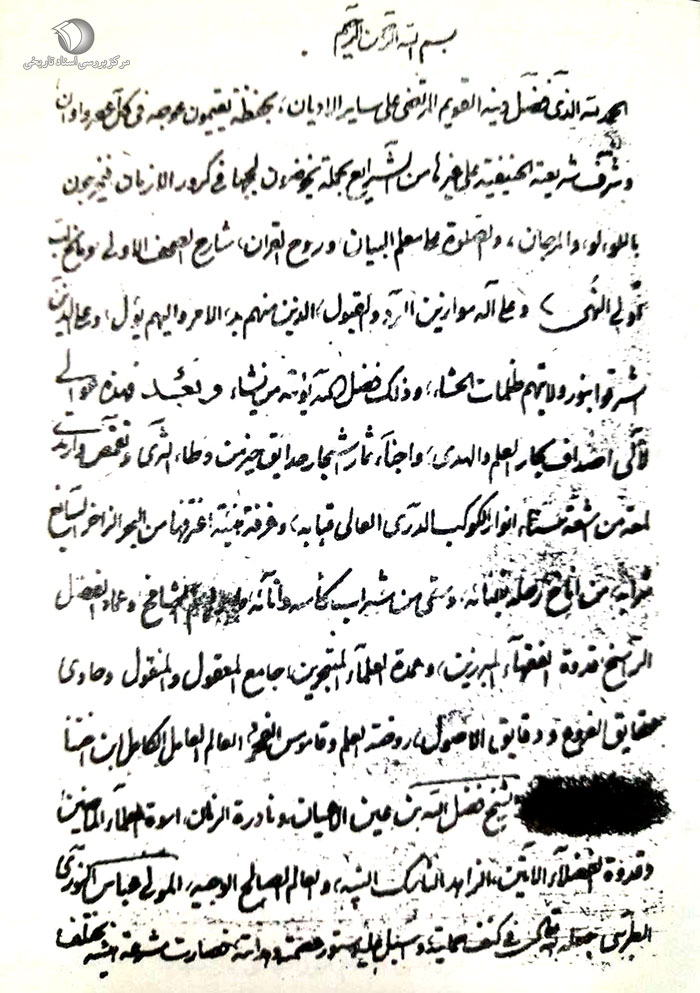 مرکز بررسی اسناد تاریخی
بسم الله الرحمن الرحیم
الحمد لله الذی فضل دینه القویم المرتضی علی سایر الادیان، بحفظة یقیمون عوجه فی کل عصر واوان
و شرف شریعته الحنیفیة علی غیرها من الشرایع بحملة یخوضون لججها فی کرور الازمان فیخرجون
باللؤلؤ والمرجان، والصلوة علی معلم البیان وروح القران، شارع الصحف الاولی
لاولی النهی وعلی آله موازین الرد والقبول، الذین منهم بدء الامر والیهم یؤل، وعلی الذین
اشرقوا بنور ولایتهم ظلمات الحشاء، وذلک فضل الله یؤتیه من یشاء وبعد فهذه
لآلی اصداف بحار العلم والهدی، واجناء ثمار اشجار حدایق
لمعة من اشعة انوار الکوکب الدری العالی قبابه، وغرفة اغترفها من البحر الزاخر السائغ
شرابه، من اناخ رحله بفنائه، وسقی من شراب کأسه وانائه، الشامخ وعماد الفضل
الراسخ قدوة الفقهاء المبرزین، وعمدة العلماء المتبحرین، جامع المعقول والمنقول وحاوی
حقایق الفروع ودقایق الاصول، روضة العلم وقاموس العالم العامل الکامل ابن اختنا
الشیخ فضل الله بن عین الاعیان، ونادرة الزمان، اسوة العلماء الماضین
وقدوة الفضلاء الآتین، الزاهد الناسک النبیه، والعالم الصالح الوجیه، المولی عباس النوری
الطبرسی جعله الله تعالی فی کنف حمایته، واسبل علیه ستور عصمته